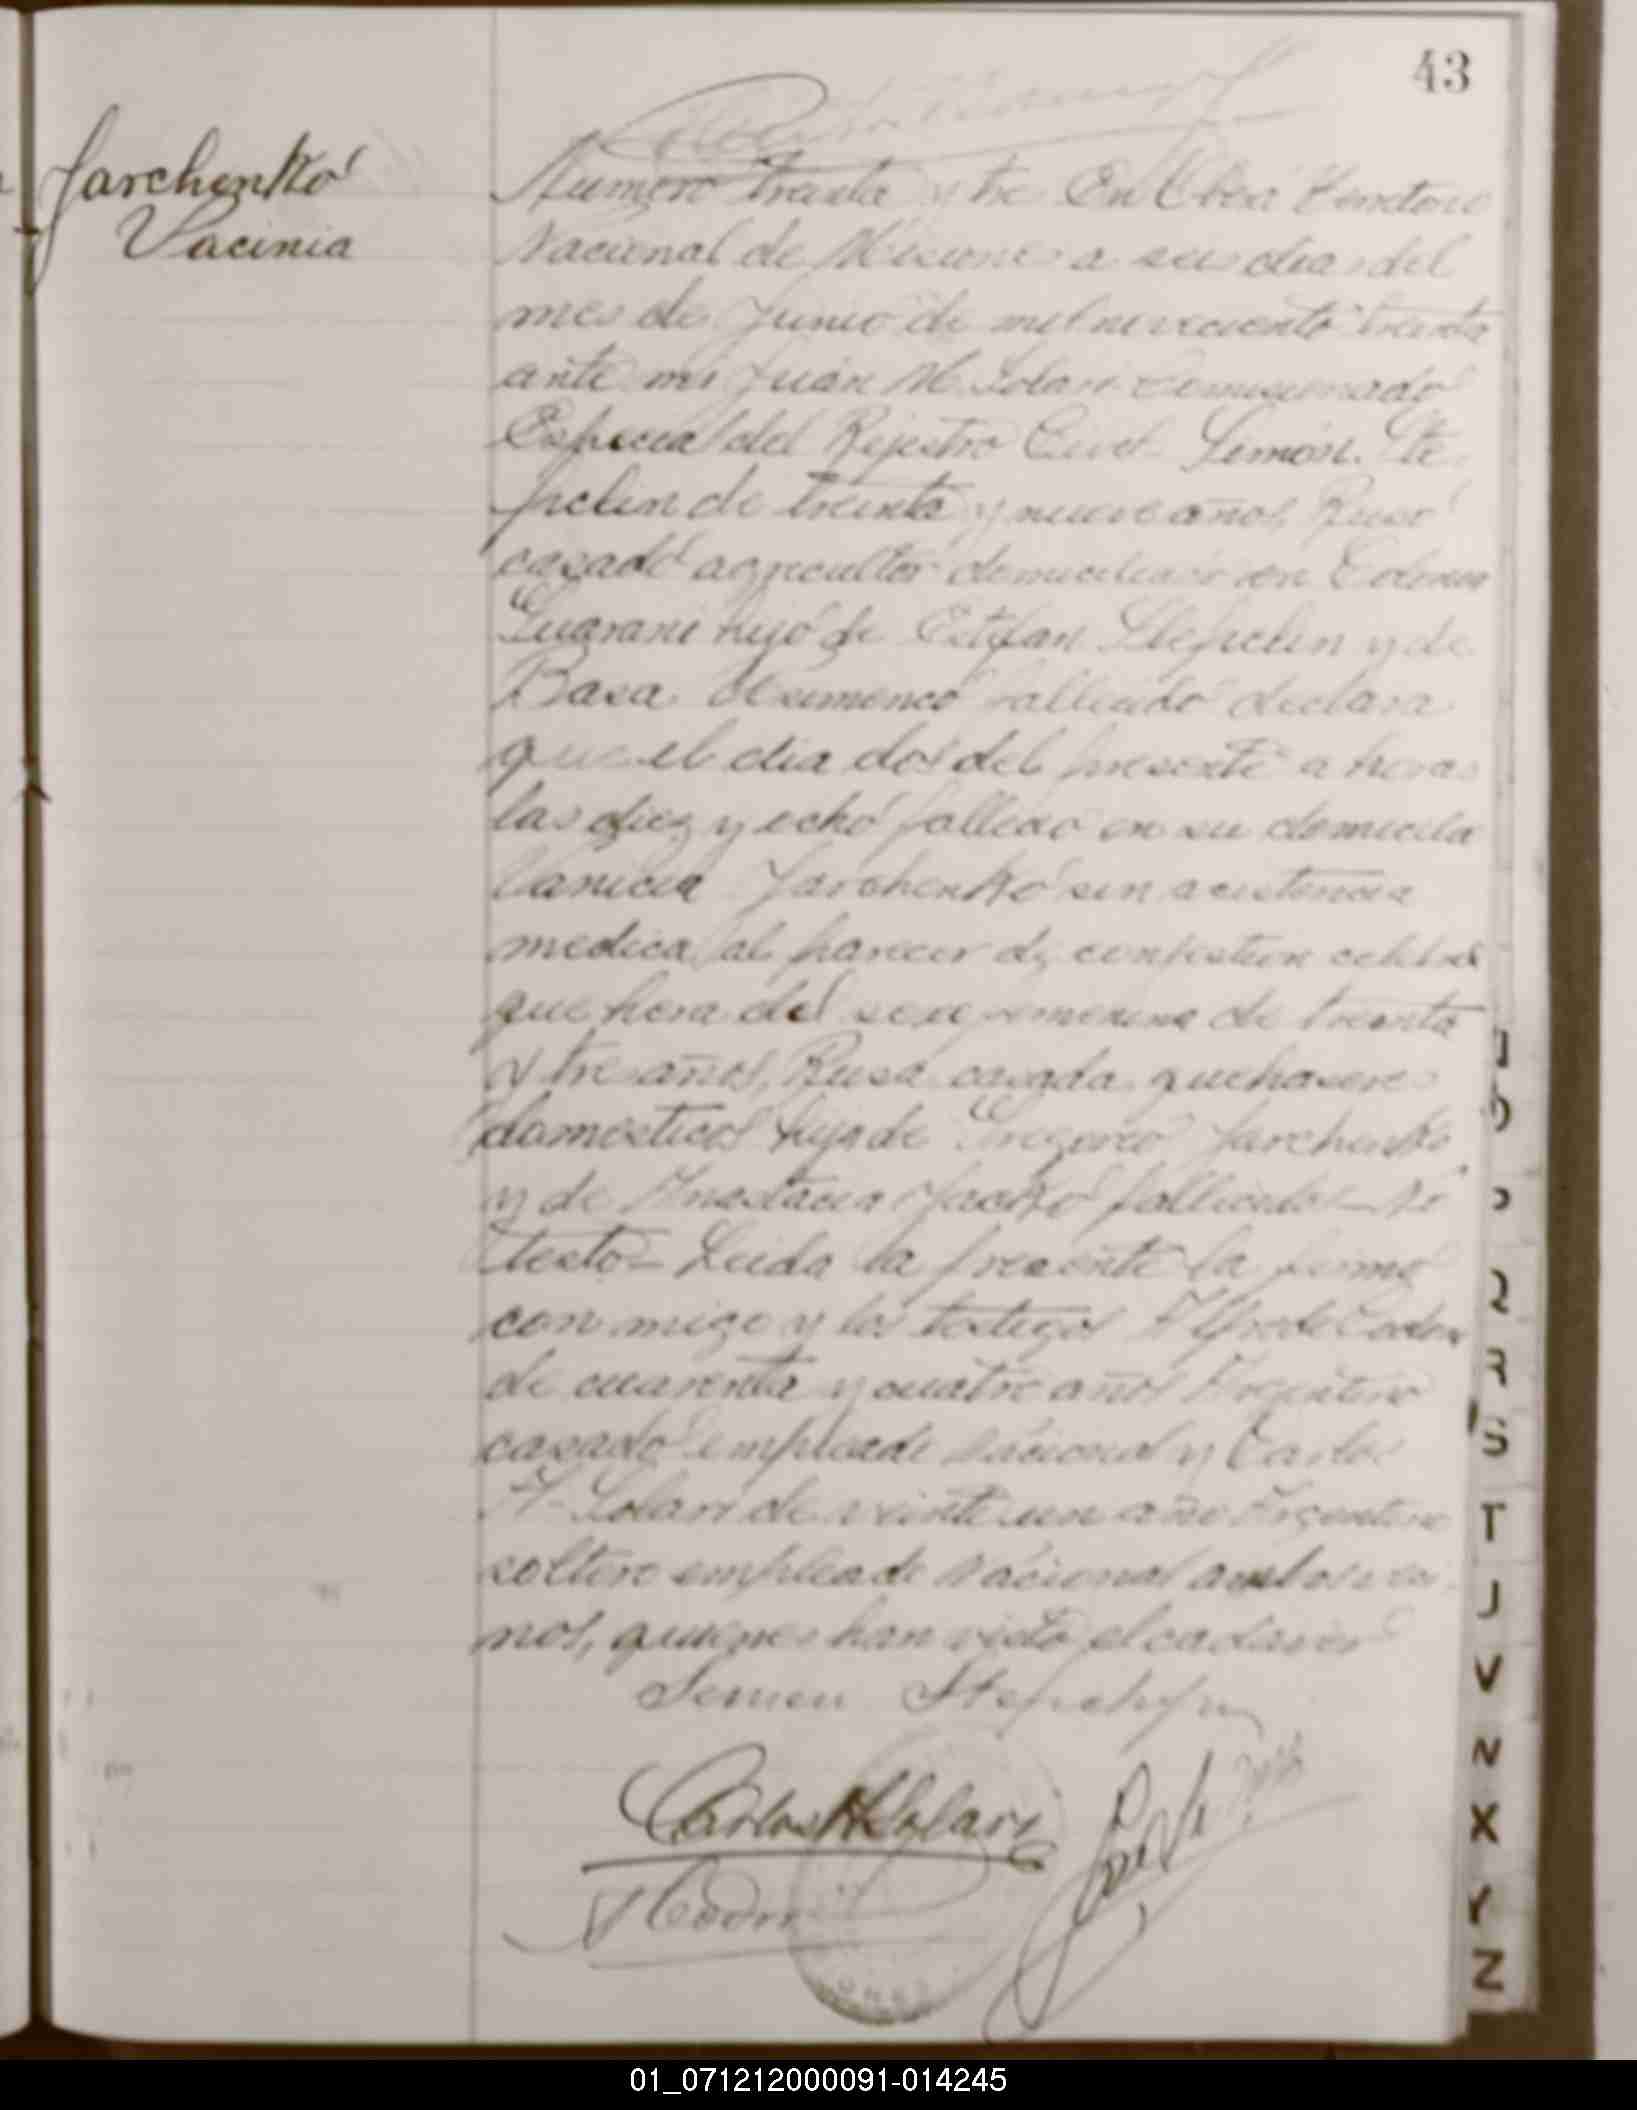 43
Jarchenko
Vacinia
Numero treinta y tre En Obera Territorio
Nacional de Misiones a seis dias del
mes de Junio de mil noveciento treinta
ante mi Juan M. Solari Comisionado
Especial del Rejistro Civil Semón. Ste
pchin de treinta y nueve años, Ruso
casado agricultor domiciliado en Colonia
Guarani hijo de Estefan Stepchin y de
Basa fallecido declara
que el dia dos del presente a horas
las diez y ocho fallecio en su domicilio
Vanicia Jarchenko sin acistencia
medica al parecer de conjestion celebral
que hera del sexo femenino de treinta
y tre años, Rusa casada quehasere
domesticos hija de Gregorio Jarchenko
y de Anastacia fallecido - No
testo - Leida la presente la firmo
con migo y los testigos Alfredo
de cuarenta y cuatro años Argentino
casado empleado Nacional y Carlos
A. Solari de veinte un año Argentino
soltero empleado Nacional ambos veci
nos, quienes han visto el cadaver
Semen
Carlos A Solari
P
Q
R
S
T
J
V
N
X
Y
Z
01_071212000091-014245